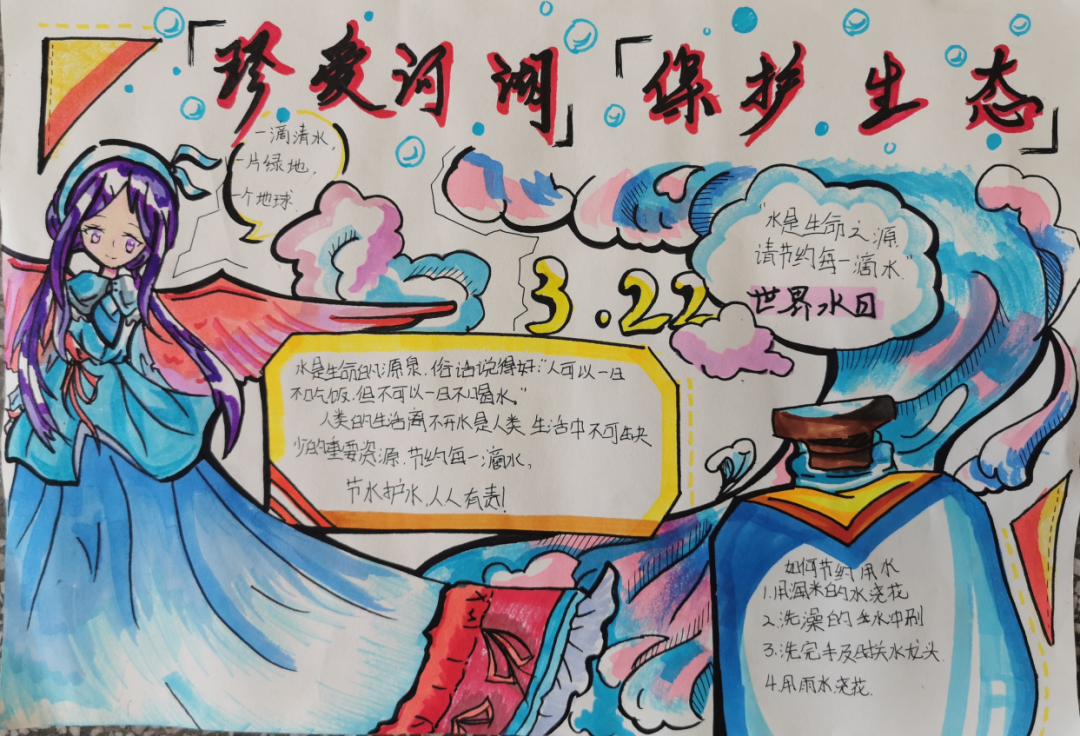 「珍爱河湖」「保护生态」
一滴清水，
一片绿地，
一个地球
"水是生命之源
请节约每一滴水"
世界水日
3.22
水是生命的源泉，俗话说得好："人可以一日
不吃饭，但不可以一日不喝水。"
人类的生活离不开水是人类生活中不可缺
少的重要资源，节约每一滴水，
节水护水，人人有责！
如何节约用水
1.用淘米的水浇花
2.洗澡的 水冲刷
3.洗完手及时关水龙头
4.用雨水浇花.